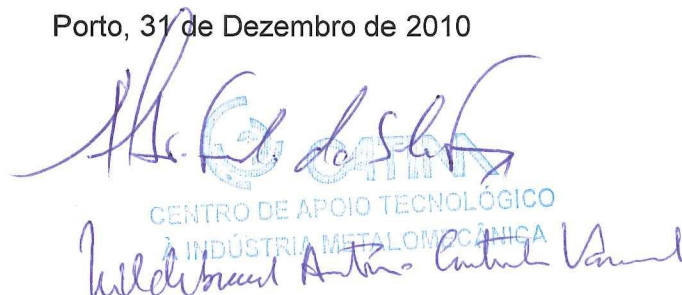 Porto, 31 de Dezembro de 2010
da Silva
CATIM
CENTRO DE APOIO TECNOLÓGICO
À INDÚSTRIA METALOMECÂNICA
António